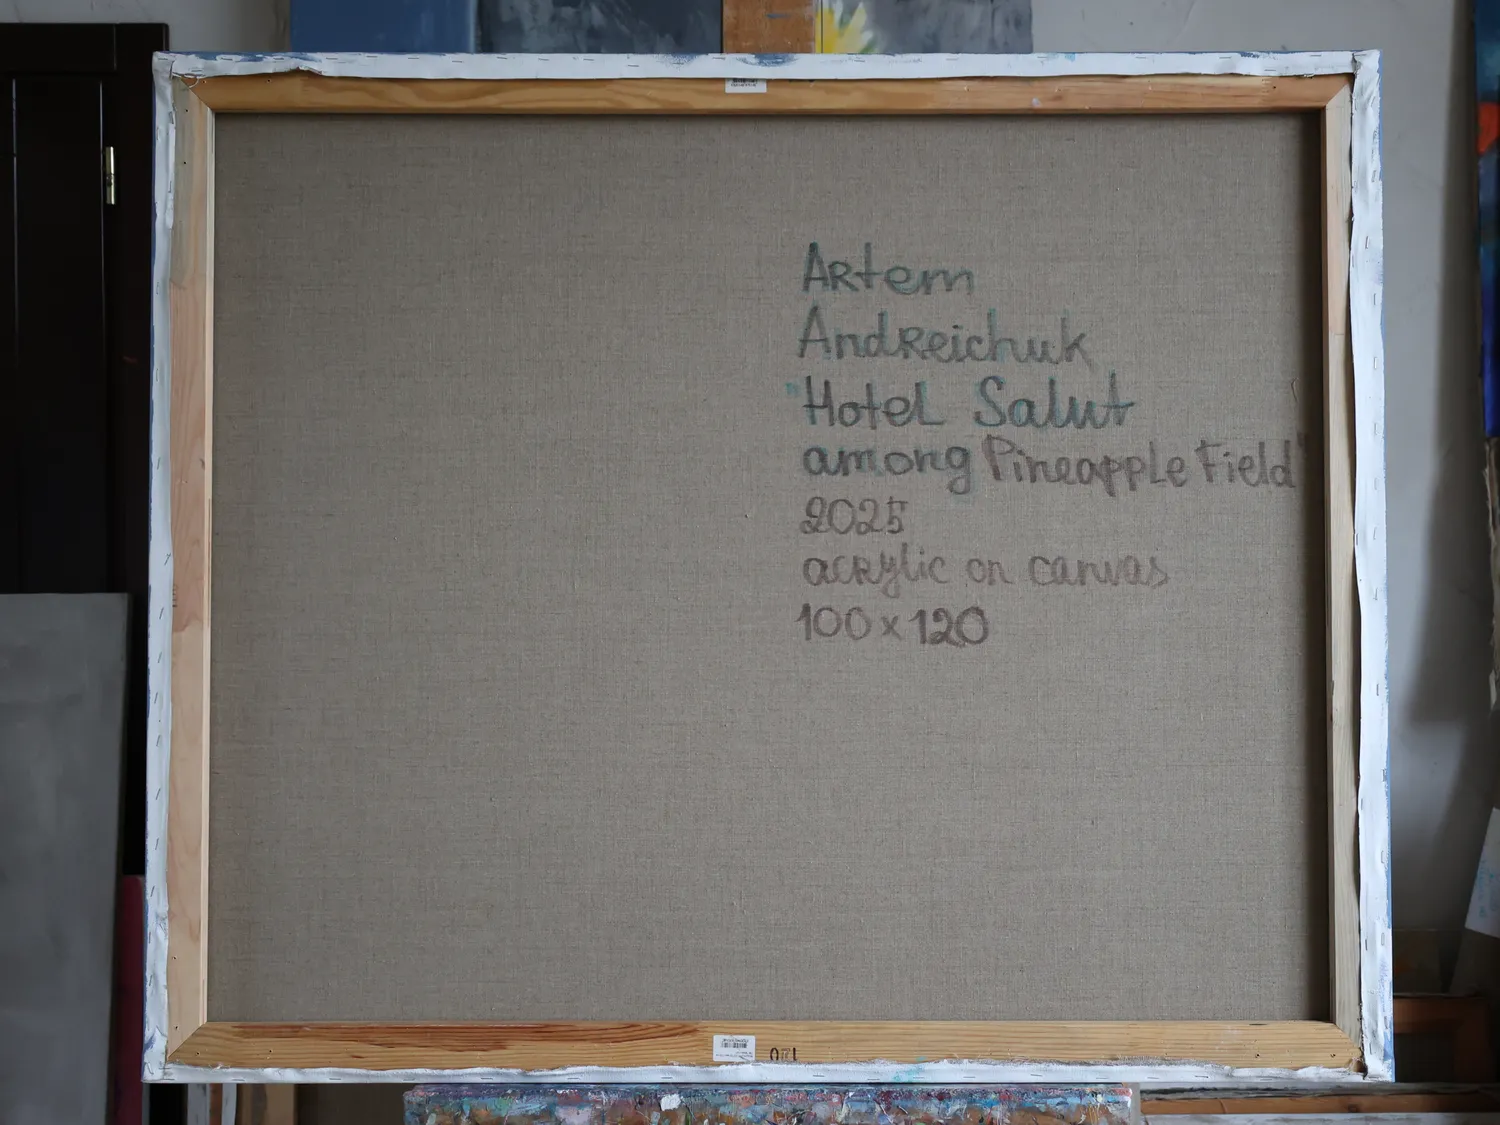 Artem
Andreichuk
"Hotel Salut
among Pineapple Field"
2025
acrylic on canvas
100 x 120
120